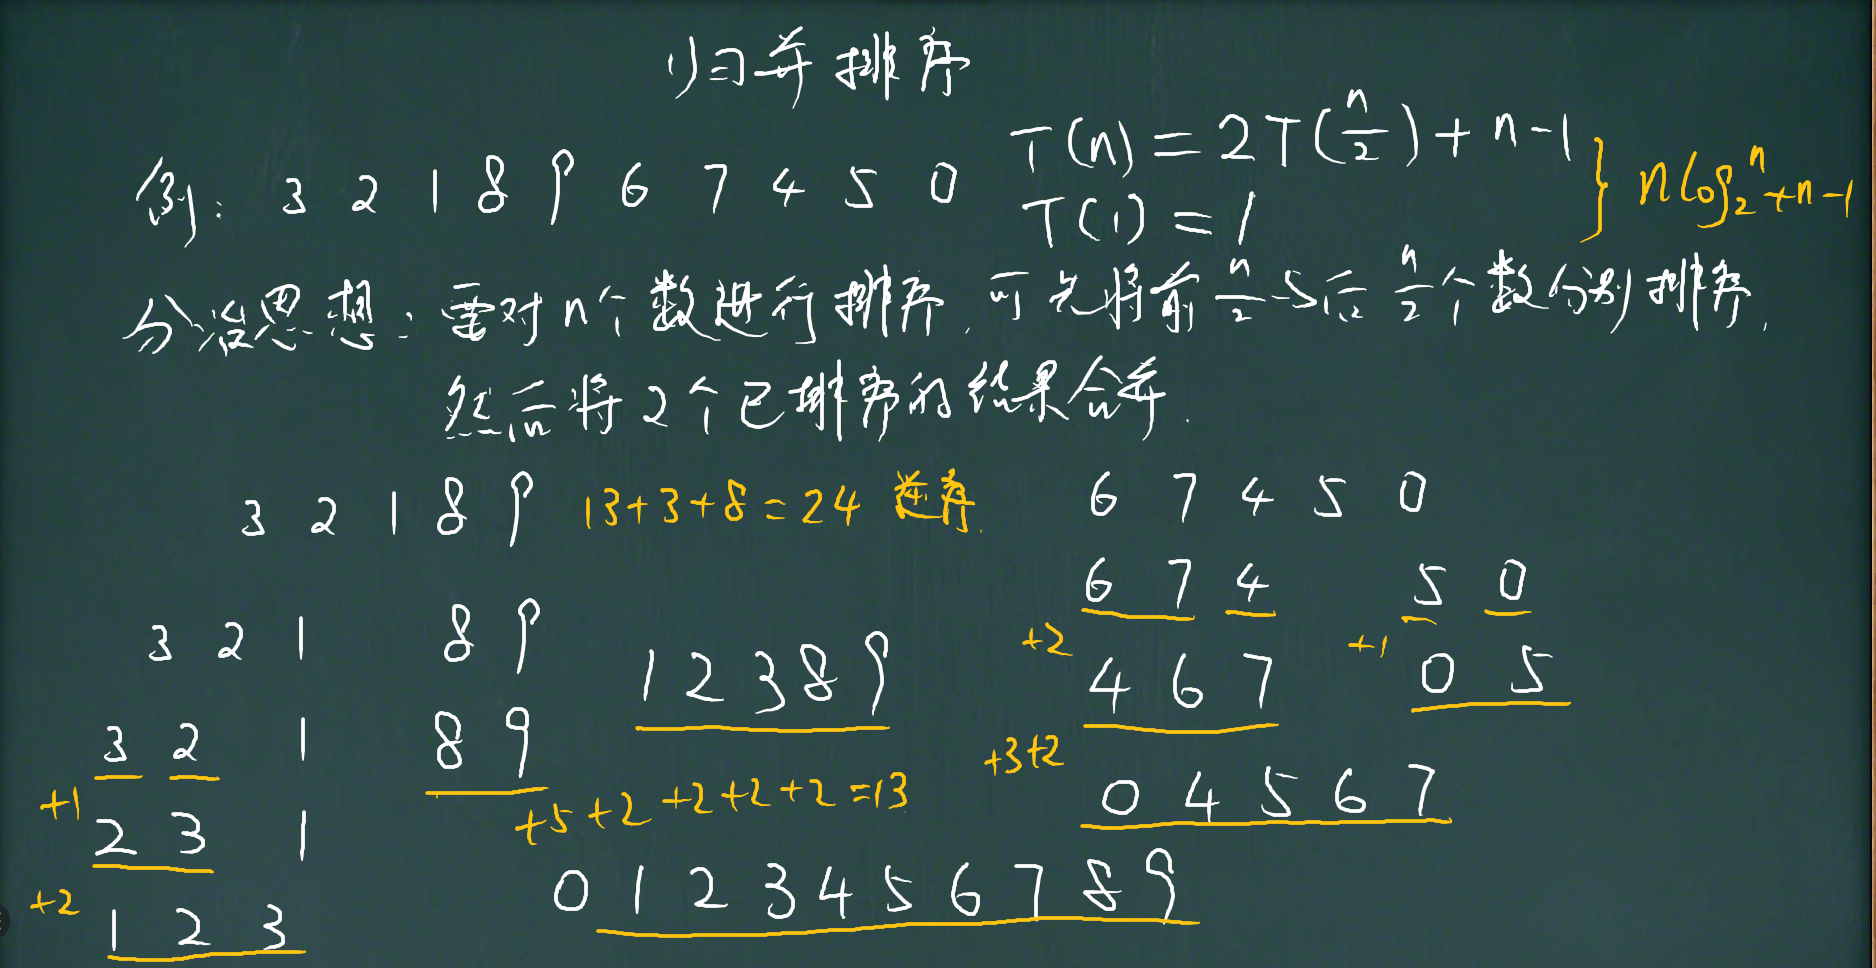 归并排序
例: 3 2 1 8 9 6 7 4 5 0
T(n) = 2T(n/2) + n-1
T(1) = 1
} nlog₂ⁿ+n-1
分治思想: 需对n个数进行排序, 可先将前 n/2 与后 n/2 个数分别排序,
然后将2个已排序的结果合并.
3 2 1 8 9 13+3+8=24 逆序. 6 7 4 5 0
6 7 4 5 0
3 2 1 8 9 1 2 3 8 9 +2 4 6 7 +1 0 5
3 2 1 8 9
+3+2 0 4 5 6 7
+1 2 3 1 +5+2+2+2+2=13
0 1 2 3 4 5 6 7 8 9
+2 1 2 3